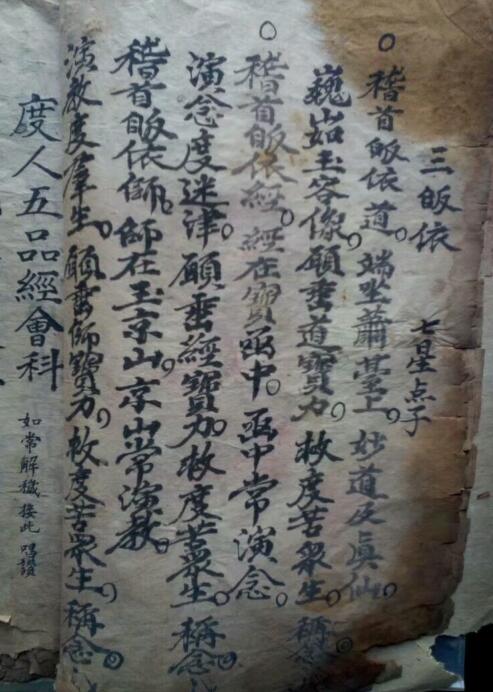 三皈依 七星点子
○稽首皈依道。端坐蕭臺上。妙道及眞仙。
巍峩玉容像。願垂道寶力。救度苦眾生。稱念
○稽首皈依經。經在寶函中。函中常演念。
演念度迷津。願垂經寶力。救度苦眾生。稱念
稽首皈依師。師在玉京山。京山常演教。
演教度羣生。願垂師寶力。救度苦眾生。稱念
度人五品經會科 如常解穢接此唱讚